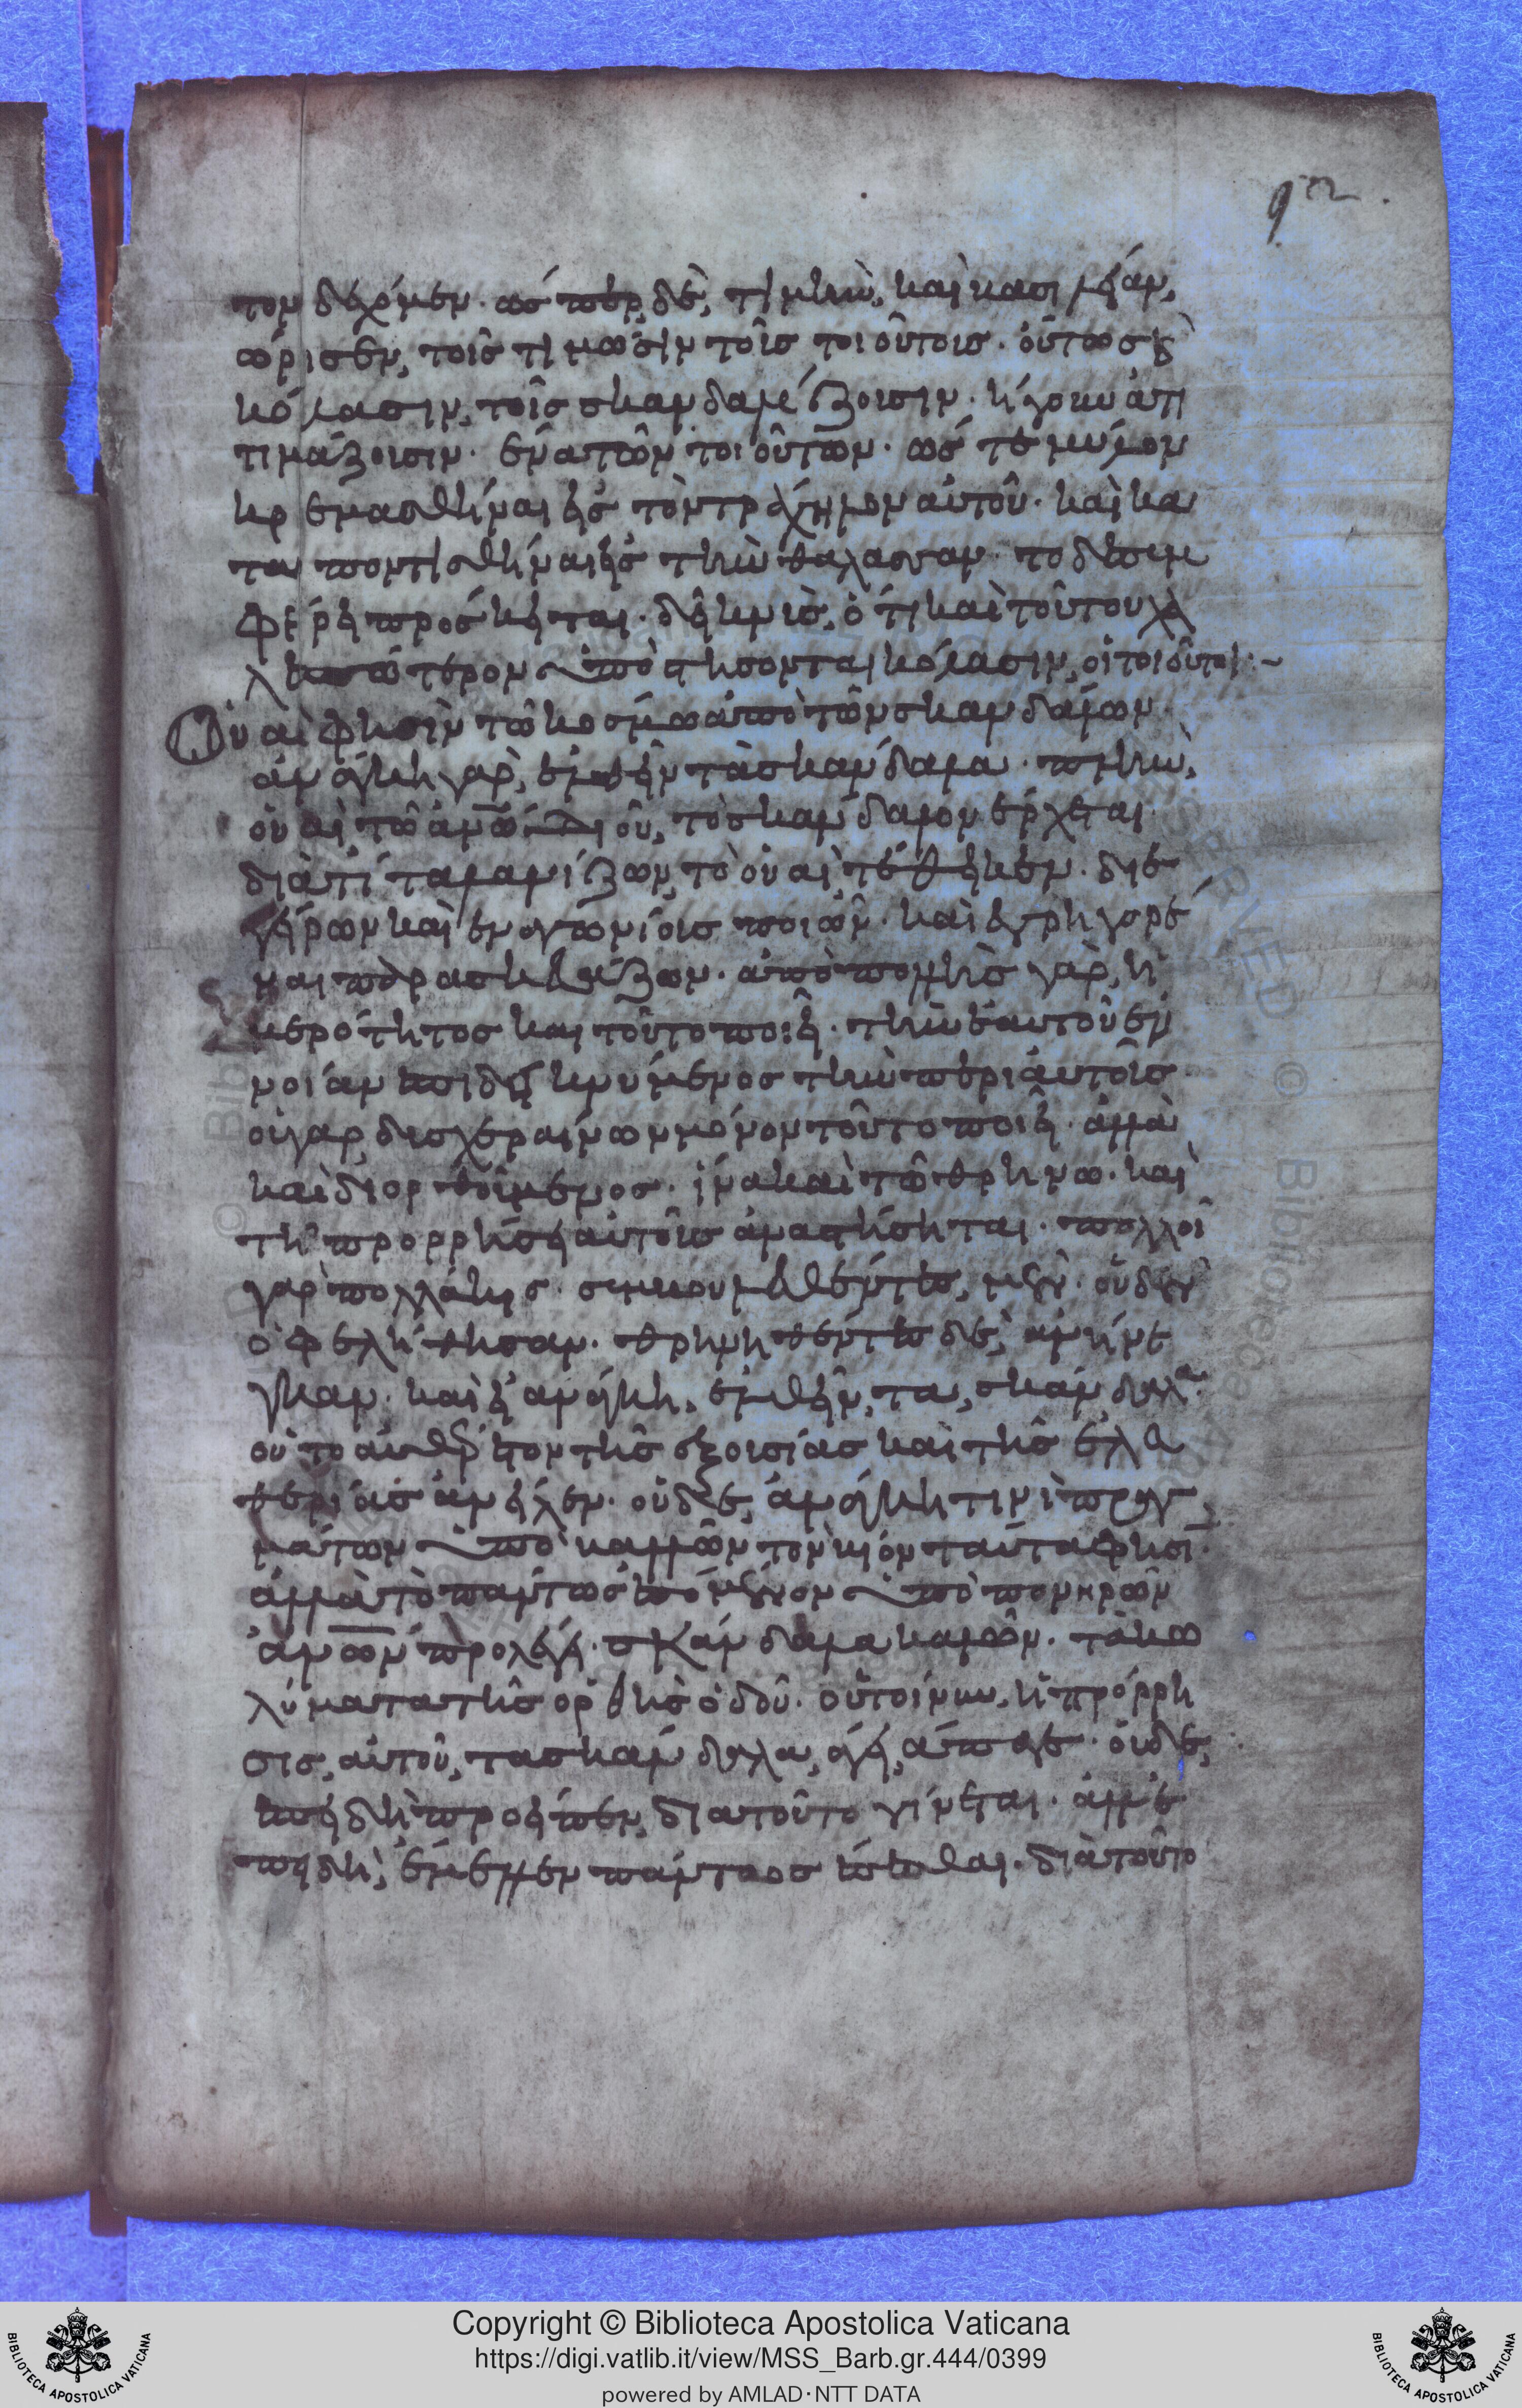 τον δεχόμεν. ὥσπερ δὲ, τιμὴν, καὶ βασιλείαν,
ὥρισεν, τοῖς τιμῶσιν τοῖς τοιοῦτοις. οὕτως δὲ
κόλασιν, τοῖς σκανδαλίζουσιν.
τιμάζουσιν. ἕνα τῶν τοιοῦτων. ὥστε μύλον
κρεμασθῆναι εἰς τὸν τράχηλον αὐτοῦ. καὶ κα
ταποντισθῆναι εἰς τὴν θάλασσαν.
πρόσκειται. δεικνὺς, ὅτι καὶ τοῦτου χα
λεπώτερον ὑποστήσονται κόλασιν, οἱ τοιοῦτοι :~
Οὐαὶ φησὶν τῶ κόσμω ἀπὸ τῶν σκανδάλων.
ἀνάγκη γὰρ, ἐλθεῖν τὰ σκάνδαλα. πλὴν,
οὐαὶ τῶ ἀνω δι οὗ, τὸ σκάνδαλον ἔρχεται.
διατί ταλανίζων, τὸ οὐαὶ τέθεικεν. διε
γείρων καὶ ἐναγωνίοις ποιῶν. καὶ ἐγρηγορέ
ναι παρασκευάζων. ἀπὸ πολλῆς γὰρ, ἡ
μερότητος καὶ τοῦτο ποιεῖ. τὴν ἑαυτοῦ εὔ
νοίαν ἐπιδεικνύμενος τὴν περὶ αὐτοῖς
οὐ γὰρ δυσχεραίνων μόνον τοῦτο ποιεῖ. ἀλλὰ
καὶ διορθούμενος. ἵνα καὶ τῶ θρήνω. καὶ
τῆ προρρήσει αὐτοῖς ἀνακτήσηται. πολλοὶ
γὰρ πολλάκις. μὲν. οὐδὲν
ὀφελήθησαν. θρηνηθέντες δὲ, ἀνήνε
γκαν. καὶ εἰ ἀνάγκη, ἐλθεῖν, τα, σκάνδαλα.
οὐ το αὐθαίρετον τῆς ἐξουσίας καὶ τῆς ἐλευ
θερίας ἀνεῖλεν. οὐδὲ, ἀνάγκη τινὶ πραγ
μάτων ὑποβάλλων τὸν βίον ταῦτα φησὶ.
ἀλλὰ τὸ πάντως ἐσόμενον ὑπὸ πονηρῶν
ἀνων προλέγει. σκάνδαλα καλῶν. τὰ κω
λύματα τῆς ὀρθῆς ὁδοῦ. οὔτοίνυν, ἡ πρόρρη
σις, αὐτοῦ, τα σκάνδαλα, ἄγει, ἄπαγε. οὐδὲ,
ἐπειδὴ προεῖπεν, διατοῦτο γίνεται. ἀλλ' ἐ
πειδὴ, ἔμελλεν πάντως ἔσεσθαι. διὰ τοῦτο
Copyright © Biblioteca Apostolica Vaticana
https://digi.vatlib.it/view/MSS_Barb.gr.444/0399
powered by AMLAD·NTT DATA
BIBLIOTECA APOSTOLICA VATICANA
BIBLIOTECA APOSTOLICA VATICANA